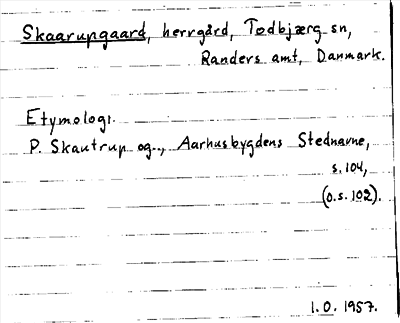 Skaarupgaard, herrgård, Todbjærg sn,
Randers amt, Danmark.
Etymologi.
P. Skautrup og.., Aarhusbygdens Stednavne,
s.104,
(o.s. 102).
1.0. 1957.